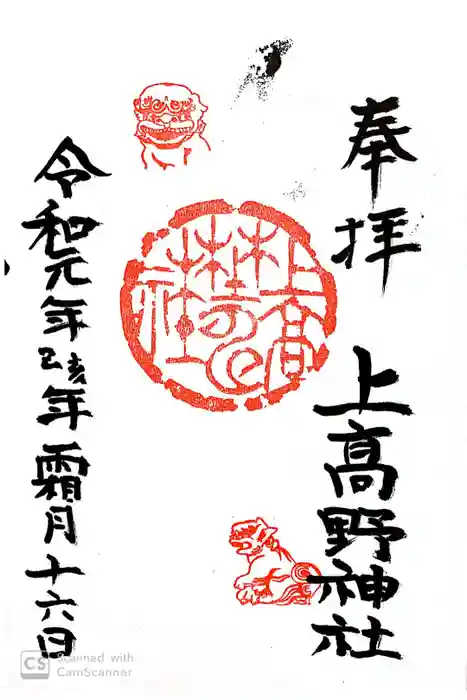 奉拝
上高野神社
令和元年乙亥年霜月十六日
CS Scanned with
CamScanner